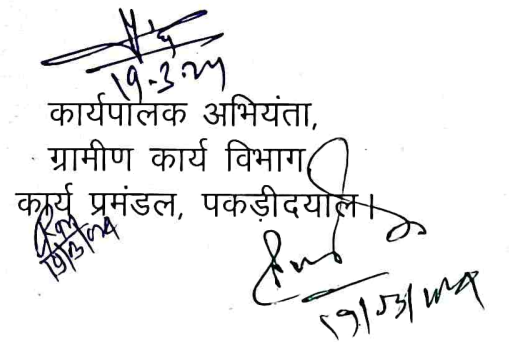 19.3.24
कार्यपालक अभियंता,
ग्रामीण कार्य विभाग
कार्य प्रमंडल, पकड़ीदयाल।
19/3/24
19/03/24